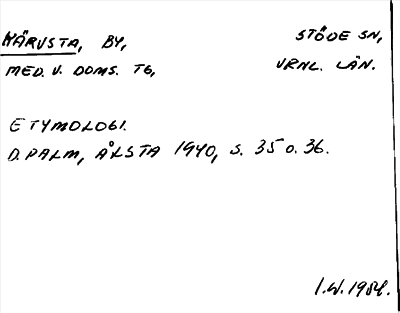 NÄRUSTA, BY, STÖDE SN,
MED. V. DOMS. TG, VRNL. LÄN.
ETYMOLOGI.
D. PALM, ÅLSTA 1940, S. 35 O. 36.
I.W. 1984.